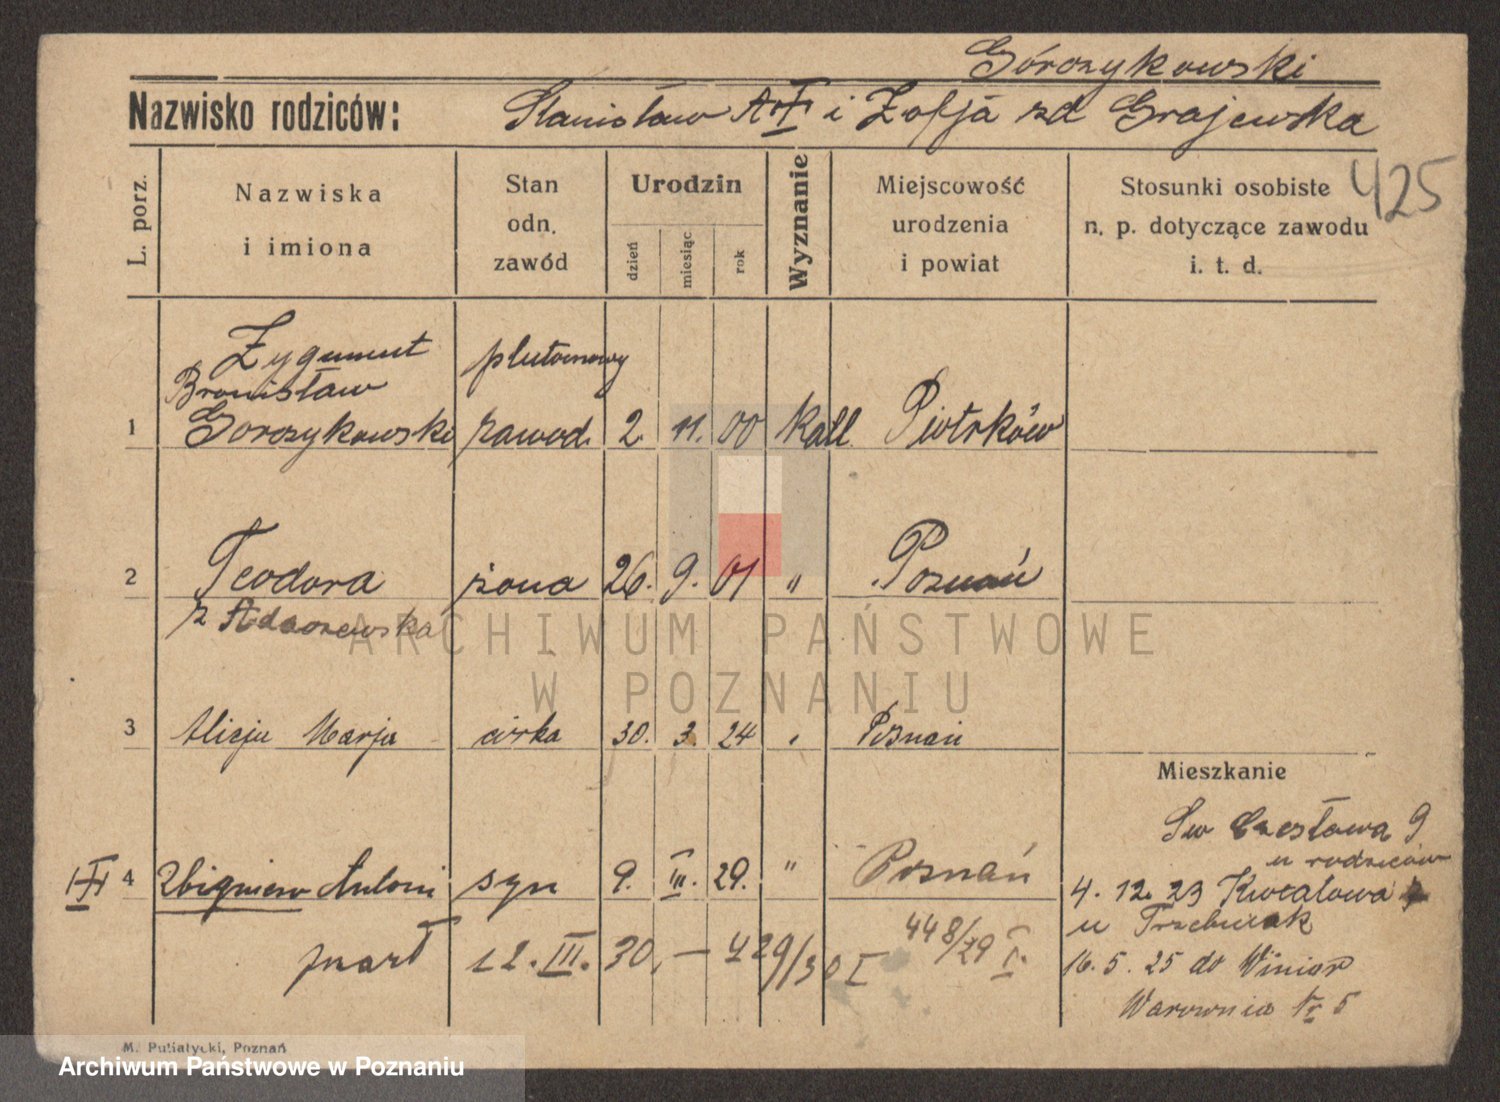 Górczykowski
Nazwisko rodziców: Stanisław i Zofja zd Grajewska
425
L. porz.
Nazwiska
i imiona
Stan
odn.
zawód
Urodzin
dzień
miesiąc
rok
Wyznanie
Miejscowość
urodzenia
i powiat
Stosunki osobiste
n. p. dotyczące zawodu
i. t. d.
Zygmunt plutonowy
Bronisław
1 Gorczykowski zawod. 2. 11. 00 Piotrków
2 Teodora żona 26. 9. 01 " Poznań
z
3 Alicja Marja córka 30. 3. 24 Poznań
Mieszkanie
Św Czesława 9
u rodziców
4 Zbigniew Antoni syn 9. III. 29. " Poznań
4. 12. 23 Kwiatowa
u Trzebuiak
zmarł 12. III. 30. — 429/30 I
448/29 I.
16. 5. 25 do Winiar
Warownia Nr 5
M. Putiatycki, Poznań
ARCHIWUM PAŃSTWOWE
W POZNANIU
Archiwum Państwowe w Poznaniu